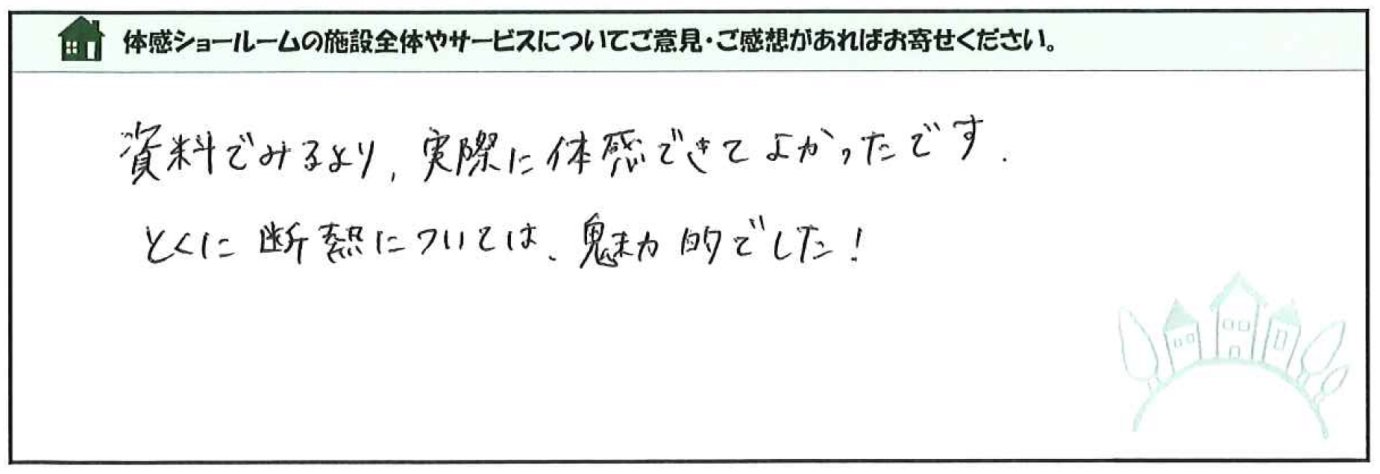 体感ショールームの施設全体やサービスについてご意見・ご感想があればお寄せください。
資料でみるより, 実際に体感できてよかったです.
とくに断熱については、魅力的でした!